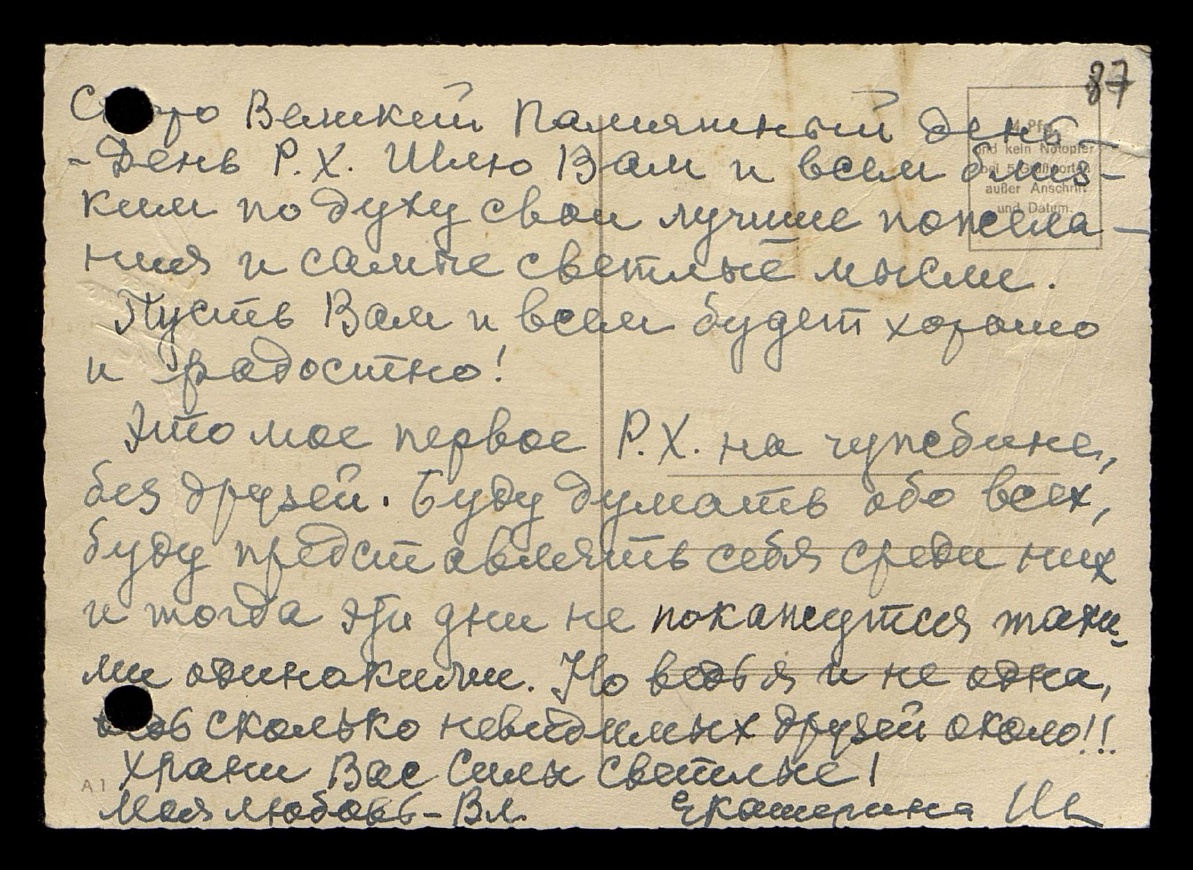 87
Скоро Великий Памятный день -
- День Р.Х. Шлю Вам и всем близ-
ким по духу свои лучшие пожела-
ния и самые светлые мысли.
Пусть Вам и всем будет хорошо
и радостно!
Это мое первое Р.Х. на чужбине,
без друзей. Буду думать обо всех,
буду представлять себя среди них
и тогда эти дни не покажутся таки-
ми одинокими. Но ведь я и не одна,
ведь сколько невидимых друзей около!!
Храни Вас Силы Светлые!
Моя любовь - Вл. Екатерина Ш
4 Pf
und kein Notopfer
bei
außer Anschrift
und Datum.
A 1